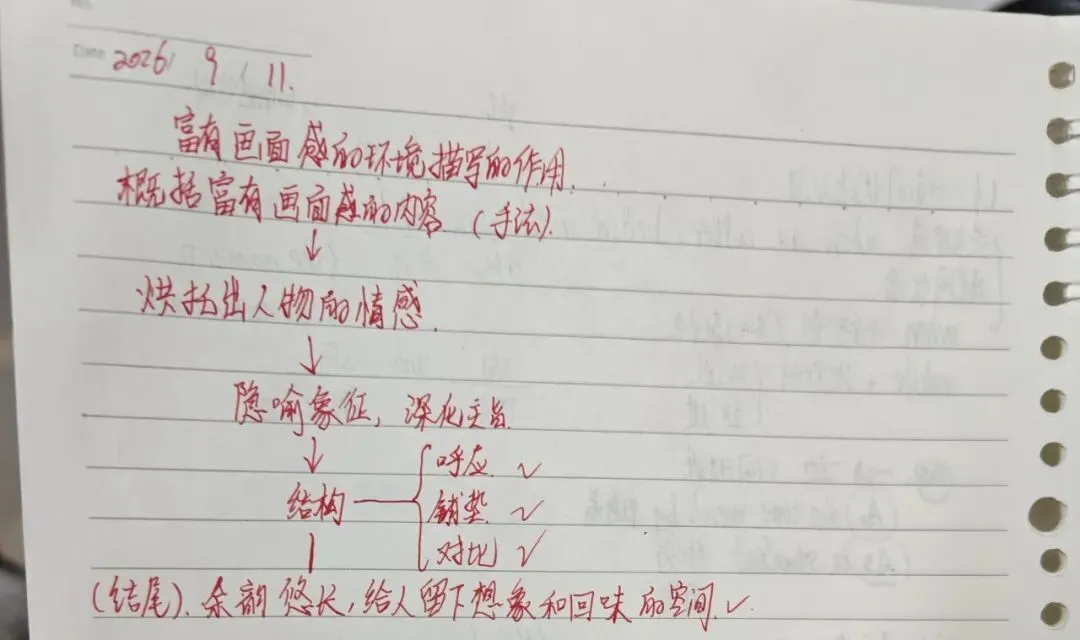 Date 2026 9 11.
富有画面感的环境描写的作用.
概括富有画面感的内容 (手法).
↓
烘托出人物的情感.
↓
隐喻象征, 深化主旨.
↓
呼应 ✓
结构 铺垫 ✓
对比 ✓
(结尾). 余韵悠长, 给人留下想象和回味的空间. ✓